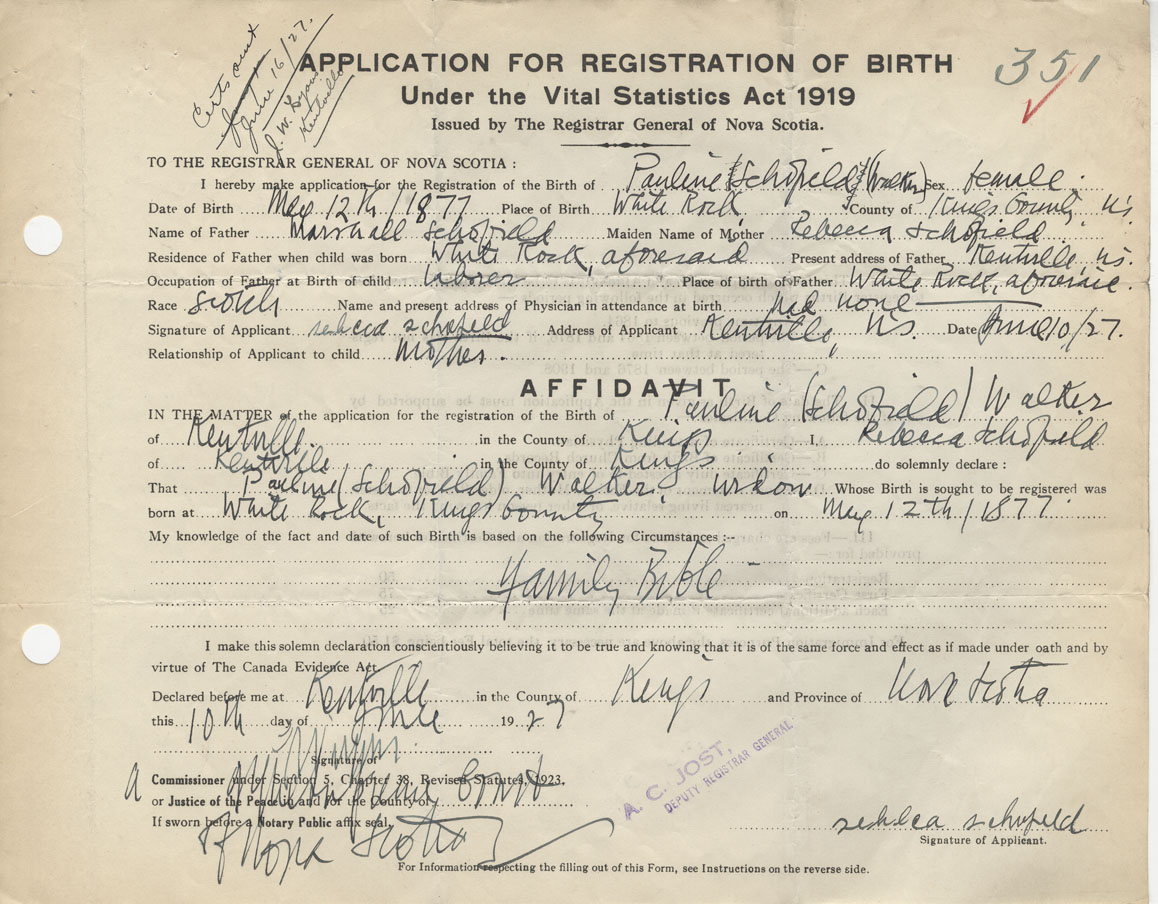 Certs out
June 16/27.
J. W. Lyons
Kentville
351
APPLICATION FOR REGISTRATION OF BIRTH
Under the Vital Statistics Act 1919
Issued by The Registrar General of Nova Scotia.
TO THE REGISTRAR GENERAL OF NOVA SCOTIA :
I hereby make application for the Registration of the Birth of Pauline (Schofield) (Walker) Sex female.
Date of Birth May 12th/1877 Place of Birth White Rock, County of Kings County, N.S.
Name of Father Marshall Schofield Maiden Name of Mother Rebecca Schofield
Residence of Father when child was born White Rock, aforesaid Present address of Father Kentville, N.S.
Occupation of Father at Birth of child laborer Place of birth of Father White Rock, aforesaid.
Race Scotch Name and present address of Physician in attendance at birth had none
Signature of Applicant rebecca schofield Address of Applicant Kentville, N.S. Date June 10/27.
Relationship of Applicant to child Mother.
AFFIDAVIT
IN THE MATTER of the application for the registration of the Birth of Pauline (Schofield) Walker
of Kentville in the County of Kings I, Rebecca Schofield
of Kentville in the County of Kings do solemnly declare :
That Pauline (Schofield) Walker, widow Whose Birth is sought to be registered was
born at White Rock, Kings County on May 12th/1877
My knowledge of the fact and date of such Birth is based on the following Circumstances :--
Family Bible
I make this solemn declaration conscientiously believing it to be true and knowing that it is of the same force and effect as if made under oath and by
virtue of The Canada Evidence Act.
Declared before me at Kentville in the County of Kings and Province of Nova Scotia
this 10th day of June 1927
Signature of
A Commissioner under Section 5, Chapter 38, Revised Statutes, 1923.
or Justice of the Peace in and for the County of
If sworn before a Notary Public affix seal.
Supreme Court
of Nova Scotia
A. C. JOST,
DEPUTY REGISTRAR GENERAL
rebecca schofield
Signature of Applicant.
For Information respecting the filling out of this Form, see Instructions on the reverse side.